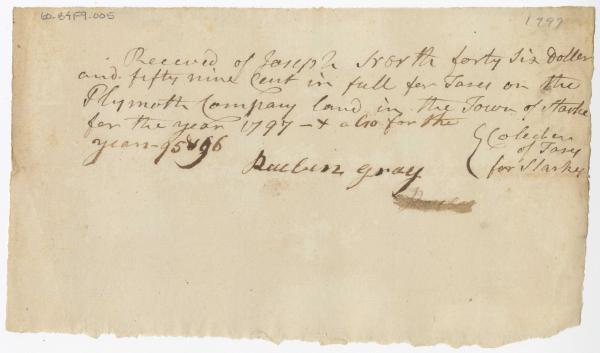 60.84F9.005
1797
Received of Joseph North forty Six Doller
and fifty nine Cent in full for Taxes on the
Plymoth Company land in the Town of Starks
for the year 1797 - & also for the
year 95 & 96
Reuben Gray
Colecter
of Taxes
for Starks